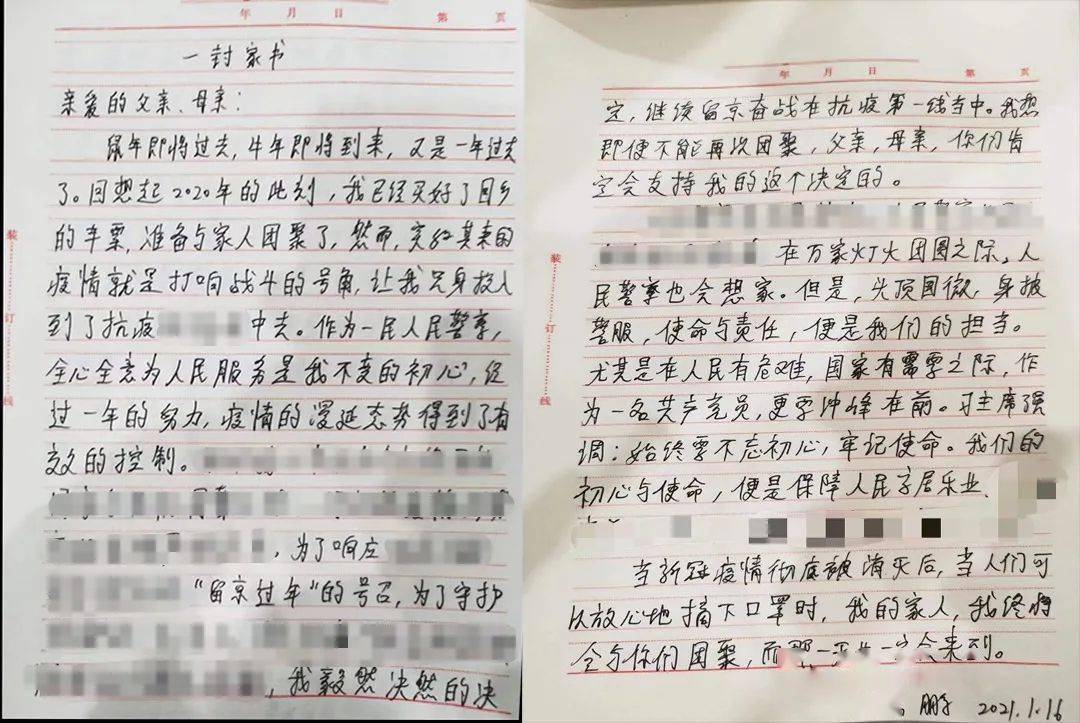 年 月 日 第 页
一封家书
亲爱的父亲、母亲：
鼠年即将过去，牛年即将到来，又是一年过去
了。回想起2020年的此刻，我已经买好了回乡
的车票，准备与家人团聚了，然而，突如其来的
疫情就是打响战斗的号角，让我只身投入
到了抗疫 中去。作为一民人民警察，
全心全意为人民服务是我不变的初心，经
过一年的努力，疫情的漫延态势得到了有
效的控制。
，为了响应
“留京过年”的号召，为了守护
，我毅然决然的决
装
订
线
年 月 日 第 页
定，继续留京奋战在抗疫第一线当中。我想
即使不能再次团聚，父亲，母亲，你们肯
定会支持我的这个决定的。
在万家灯火团圆之际，人
民警察也会想家。但是，头顶国徽，身披
警服，使命与责任，便是我们的担当。
尤其是在人民有危难，国家有需要之际，作
为一名共产党员，更要冲锋在前。习主席强
调：始终要不忘初心，牢记使命。我们的
初心与使命，便是保障人民安居乐业、
当新冠疫情彻底被消灭后，当人们可
以放心地摘下口罩时，我的家人，我终将
会与你们团聚，而 一天 一定会来到。
鹏 2021.1.16
装
订
线